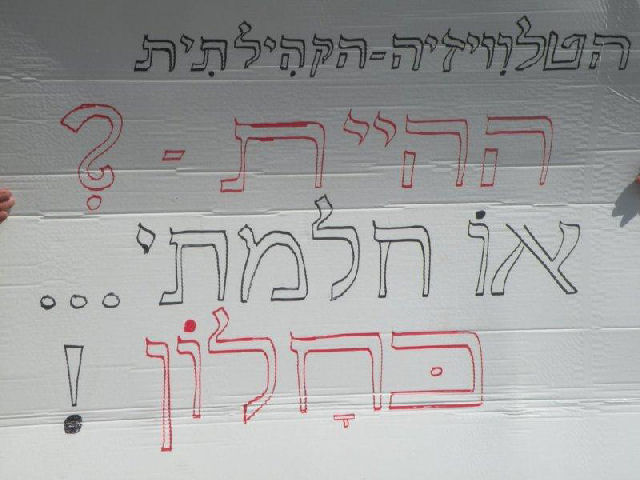 הטלוויזיה-הקהילתית
ההיית - ?
או חלמתי...
כחלון !